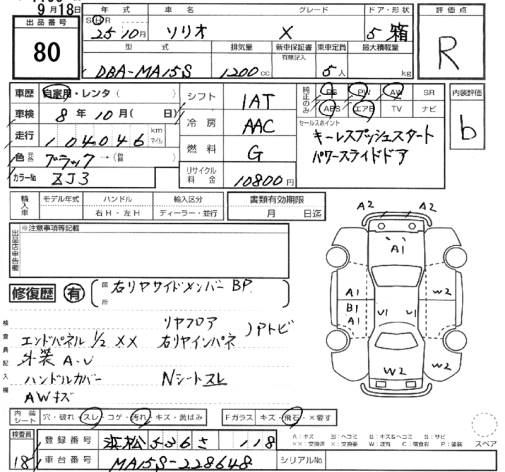 9月18日
出品番号
80
年式 車名 グレード ドア・形状
S H R
25年10月 ソリオ X 5 箱
型式 排気量 新車保証書 有無記入 乗車定員 最大積載量
DBA-MA15S 1200cc 5人 kg
評価点
R
車歴 自家用・レンタ( )
車検 8年10月( 日)
走行 104046 km マイル
色 ブラック → (替)
カラーNo ZJ3
シフト 1AT
冷房 AAC
燃料 G
リサイクル料金 10800円
純正のみ PS PW AW SR
ABS エアB TV ナビ
セールスポイント
キーレスプッシュスタート
パワースライドドア
内装評価
b
輸入車 モデル年式 ハンドル 輸入区分
右H・左H ディーラー・並行
書類有効期限
月 日迄
※注意事項等記載
修復歴 有 箇所 右リヤサイドメンバーBP
検査員記入欄
リヤフロア
エンドパネル 1/2 ×× 右リヤインパネ )Pトビ
外装 A・U
ハンドルカバー Nシートスレ
AWキズ
A2 A2
A1
A1
B1
A1
U1 U1
W2
W2
W2
内装シート 穴・破れ・スレ・コゲ・汚れ・キズ・黄ばみ Fガラス キズ・飛石・×要す
検査員
18
登録番号 浜松 526 さ 118
車台番号 MA15S-228648 シリアルNo
スペア